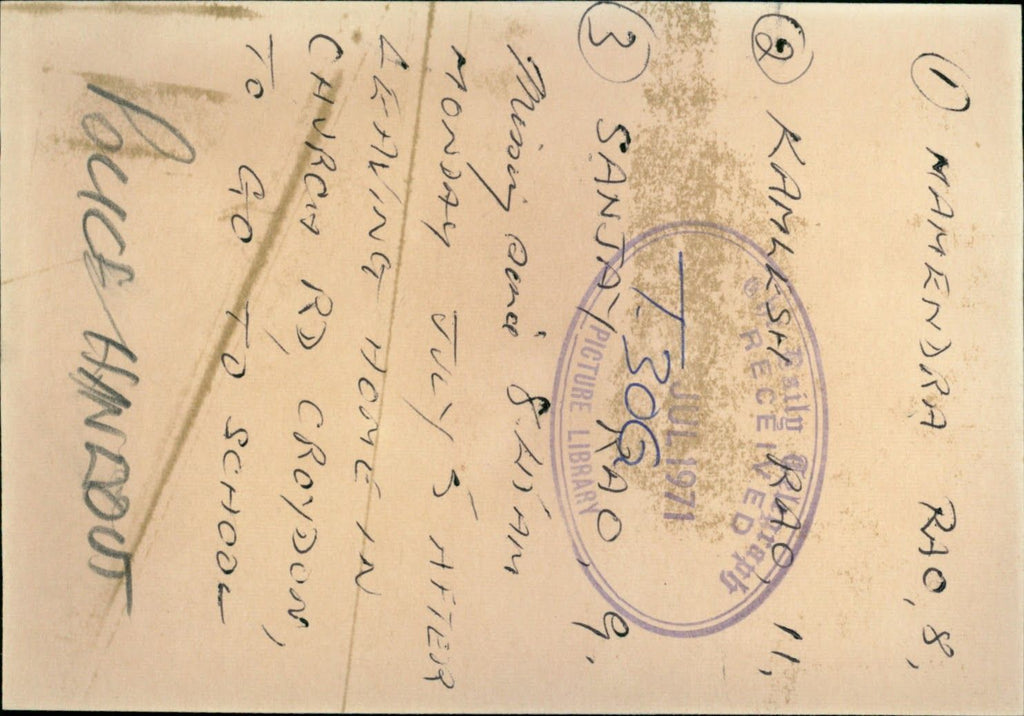 ① MAHENDRA RAO, 8,
② KAMLESH RAO, 11,
③ SANJAY RAO, 9,
Missing since 8.45AM
MONDAY JULY 5 AFTER
LEAVING HOME IN
CHURCH RD, CROYDON,
TO GO TO SCHOOL
POLICE HANDOUT
Daily Telegraph
RECEIVED
JUL 1971
PICTURE LIBRARY